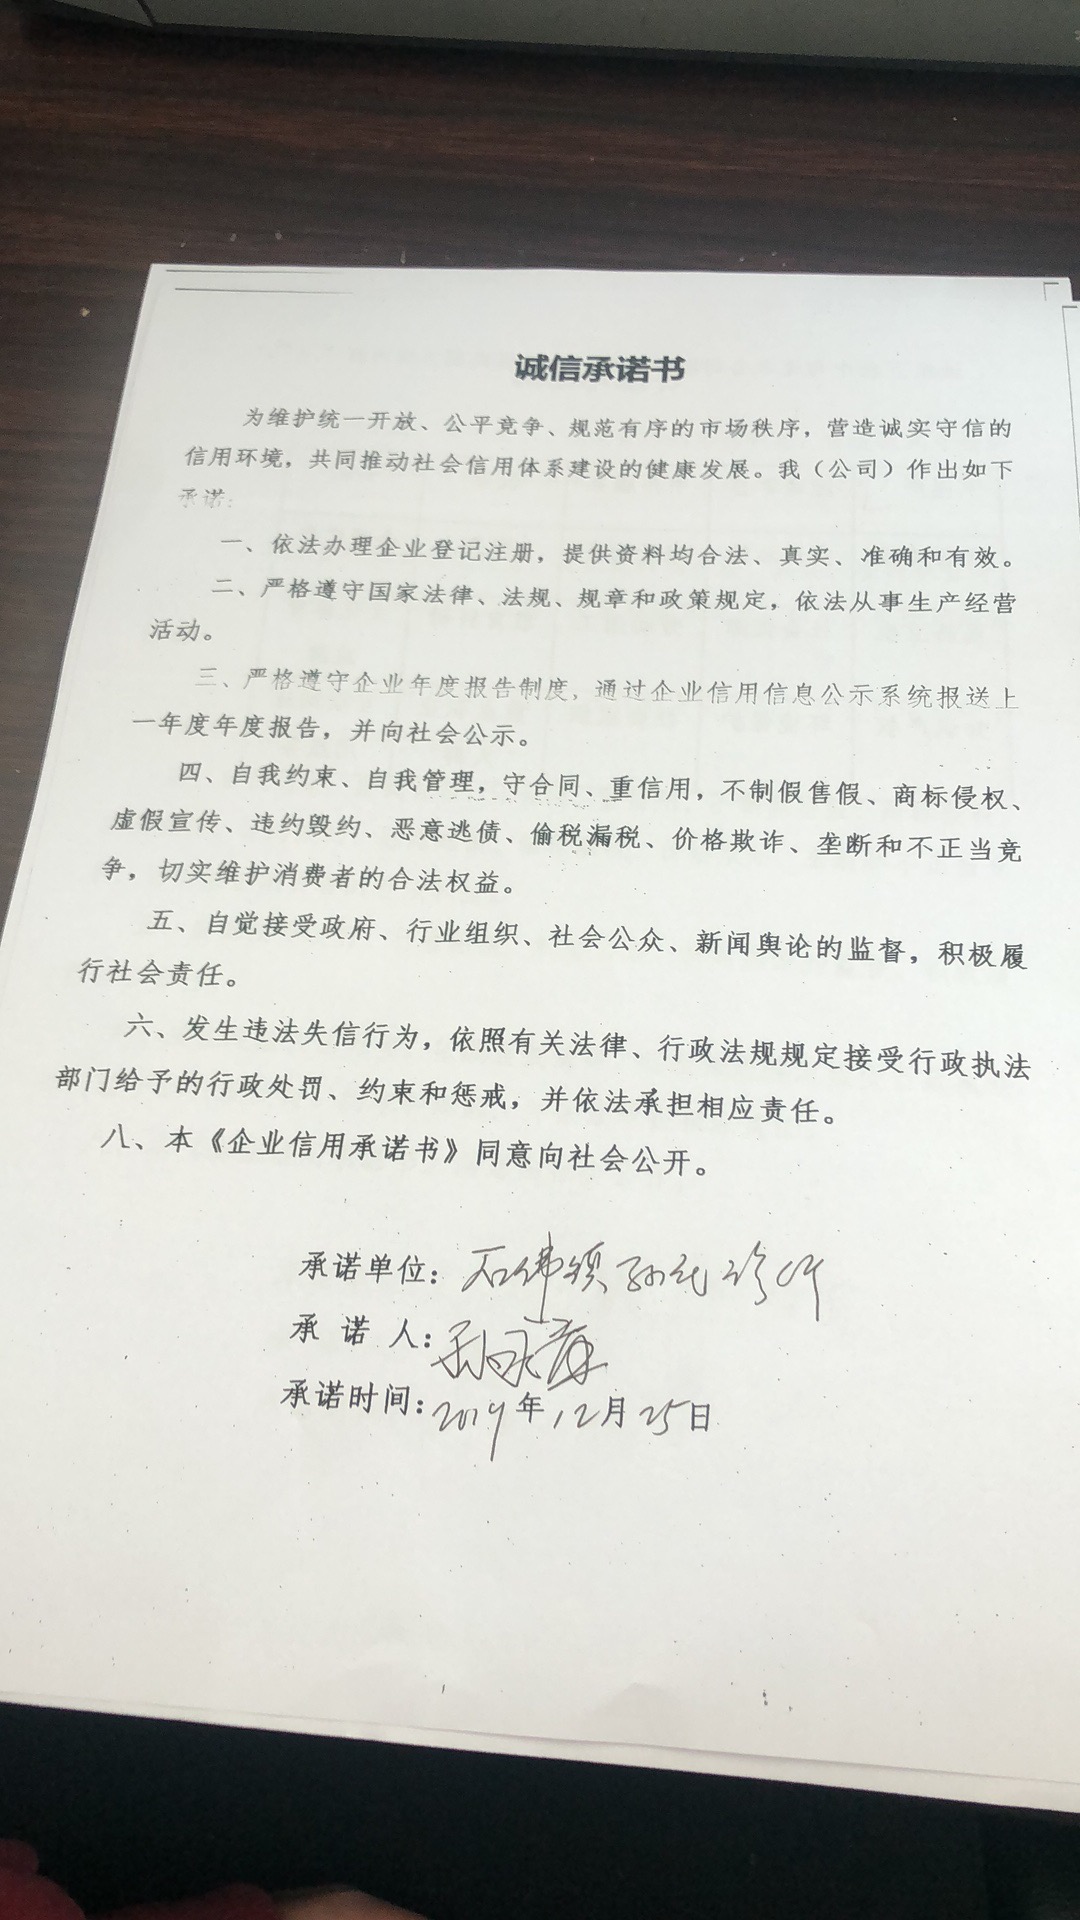 诚信承诺书
为维护统一开放、公平竞争、规范有序的市场秩序，营造诚实守信的
信用环境，共同推动社会信用体系建设的健康发展。我（公司）作出如下
承诺：
一、依法办理企业登记注册，提供资料均合法、真实、准确和有效。
二、严格遵守国家法律、法规、规章和政策规定，依法从事生产经营
活动。
三、严格遵守企业年度报告制度，通过企业信用信息公示系统报送上
一年度年度报告，并向社会公示。
四、自我约束、自我管理，守合同、重信用，不制假售假、商标侵权、
虚假宣传、违约毁约、恶意逃债、偷税漏税、价格欺诈、垄断和不正当竞
争，切实维护消费者的合法权益。
五、自觉接受政府、行业组织、社会公众、新闻舆论的监督，积极履
行社会责任。
六、发生违法失信行为，依照有关法律、行政法规规定接受行政执法
部门给予的行政处罚、约束和惩戒，并依法承担相应责任。
八、本《企业信用承诺书》同意向社会公开。
承诺单位：石佛镇孙氏诊所
承 诺 人：
承诺时间：2019年12月25日